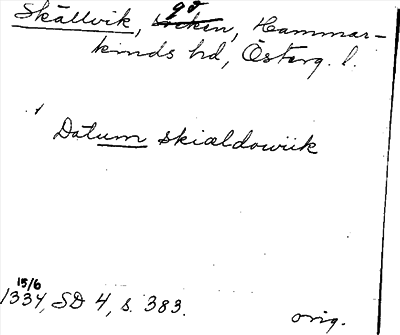 Skällvik, gd, Hammar-
kinds hd, Österg. l.
Datum skiældowiik
15/6
1334, SD 4, s. 383.
orig.